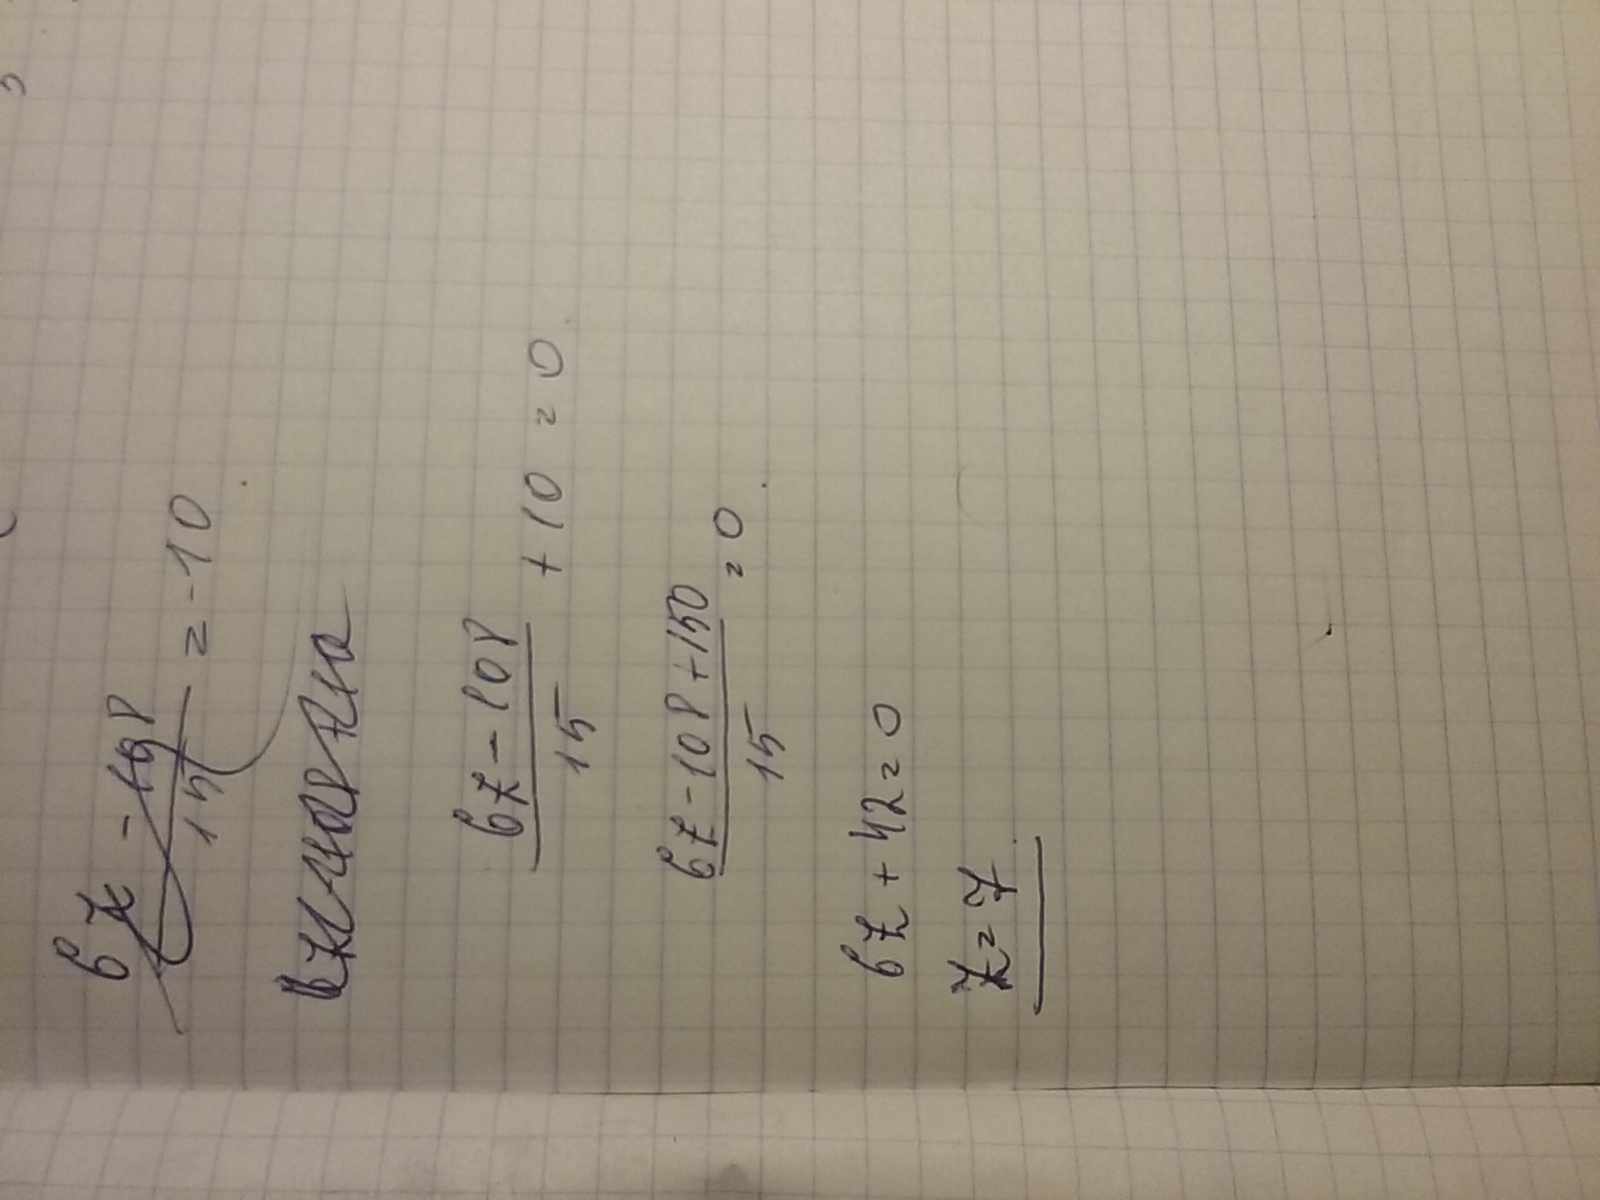 6z - 108
15
= -10
6z - 108
15
+ 10 = 0
6z - 108 + 150
15
= 0
6z + 42 = 0
z = 7